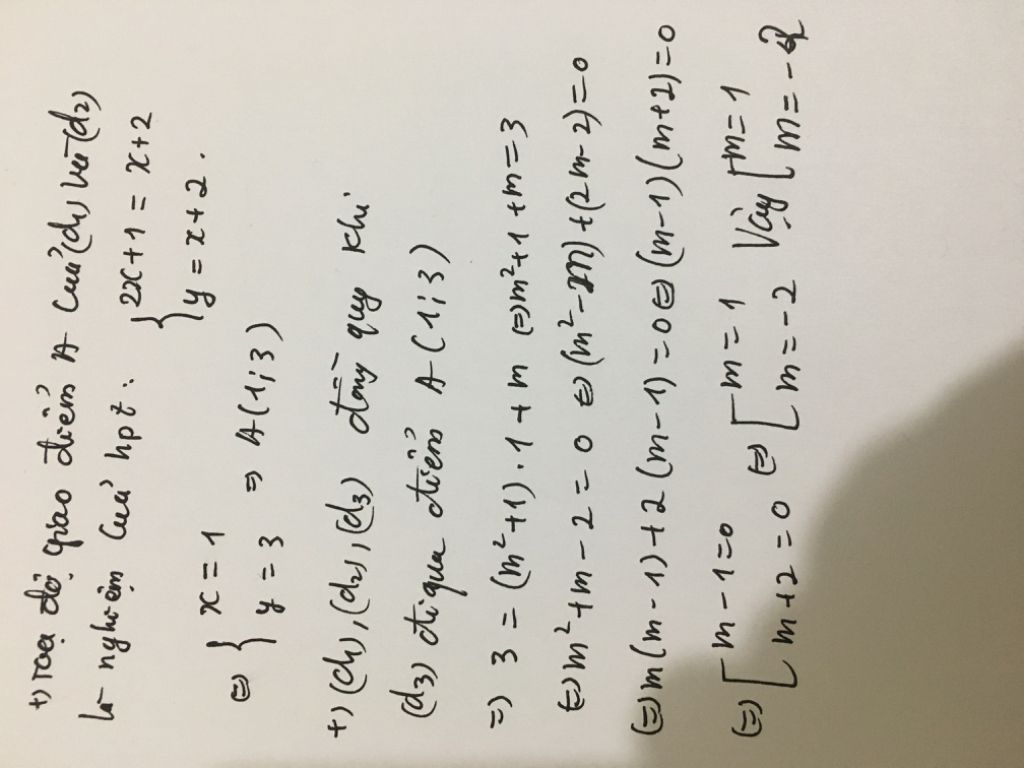 +) Toạ độ giao điểm A của (d1) và (d2)
là nghiệm của hpt: { 2x+1 = x+2
y = x+2.
⇔ { x = 1
y = 3 ⇒ A(1;3)
+) (d1), (d2), (d3) đồng quy khi
(d3) đi qua điểm A(1;3)
⇒) 3 = (m²+1).1 + m ⇔ m²+1+m = 3
⇔ m²+m-2 = 0 ⇔ (m²-m)+(2m-2)=0
⇔ m(m-1)+2(m-1)=0 ⇔ (m-1)(m+2)=0
⇔ [ m-1=0 ⇔ [ m=1 Vậy [ m=1
m+2=0 m=-2 m=-2